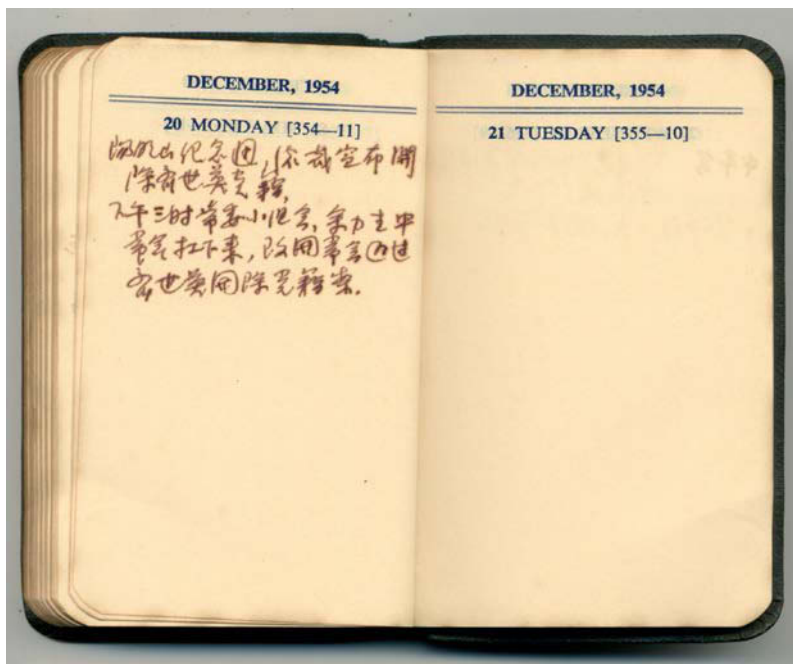 DECEMBER, 1954
20 MONDAY [354—11]
陽明山纪念週，总裁宣布開
除齊世英党籍，
下午三时常委小组会，余力主中
常会扛下来，改開常会通过
齊世英開除党籍案．
DECEMBER, 1954
21 TUESDAY [355—10]